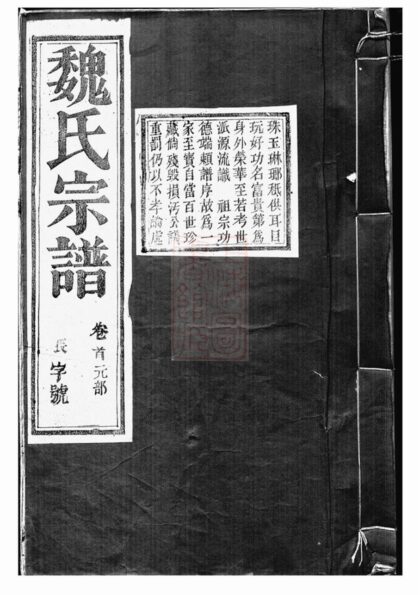 魏氏宗譜
卷首元部
長字號
珠玉琳瑯秪供耳目
玩好功名富貴第為
身外榮華至若考世
派源流識 祖宗功
德端賴譜序故為一
家至寶自當百世珍
藏倘殘毀損污公議
重罰仍以不孝論處